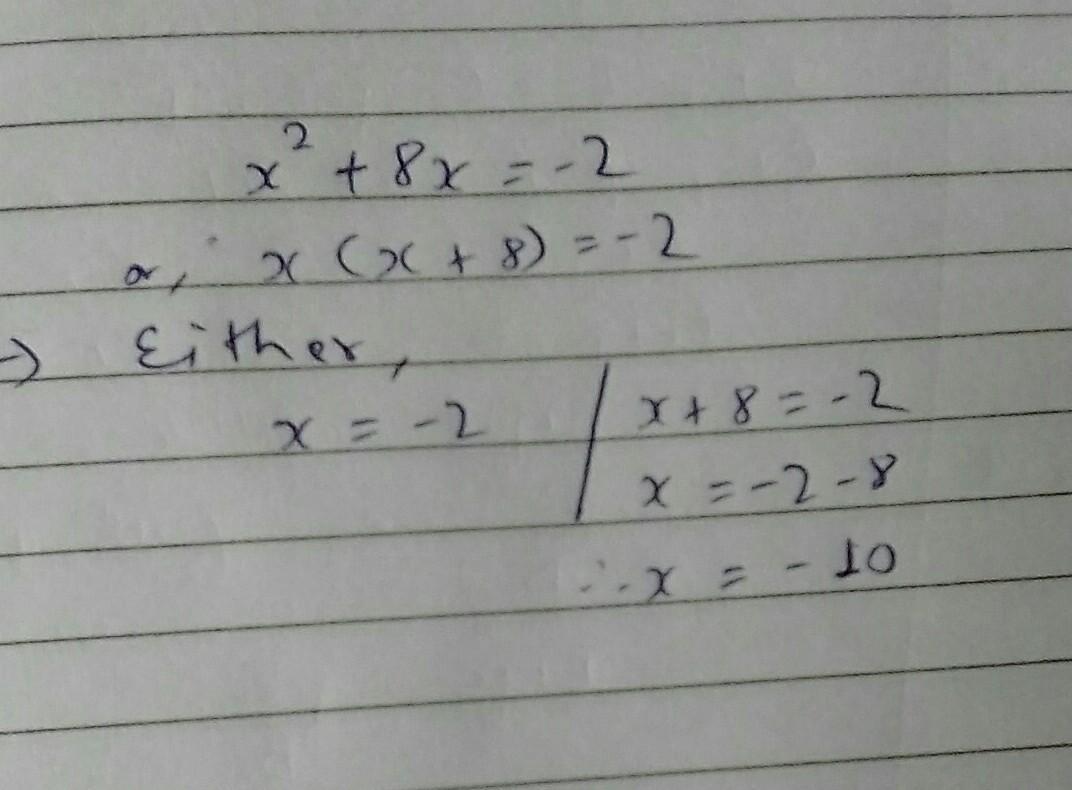 x² + 8x = -2
or, x (x + 8) = -2
→ Either,
x = -2 | x + 8 = -2
x = -2 - 8
∴ x = -10